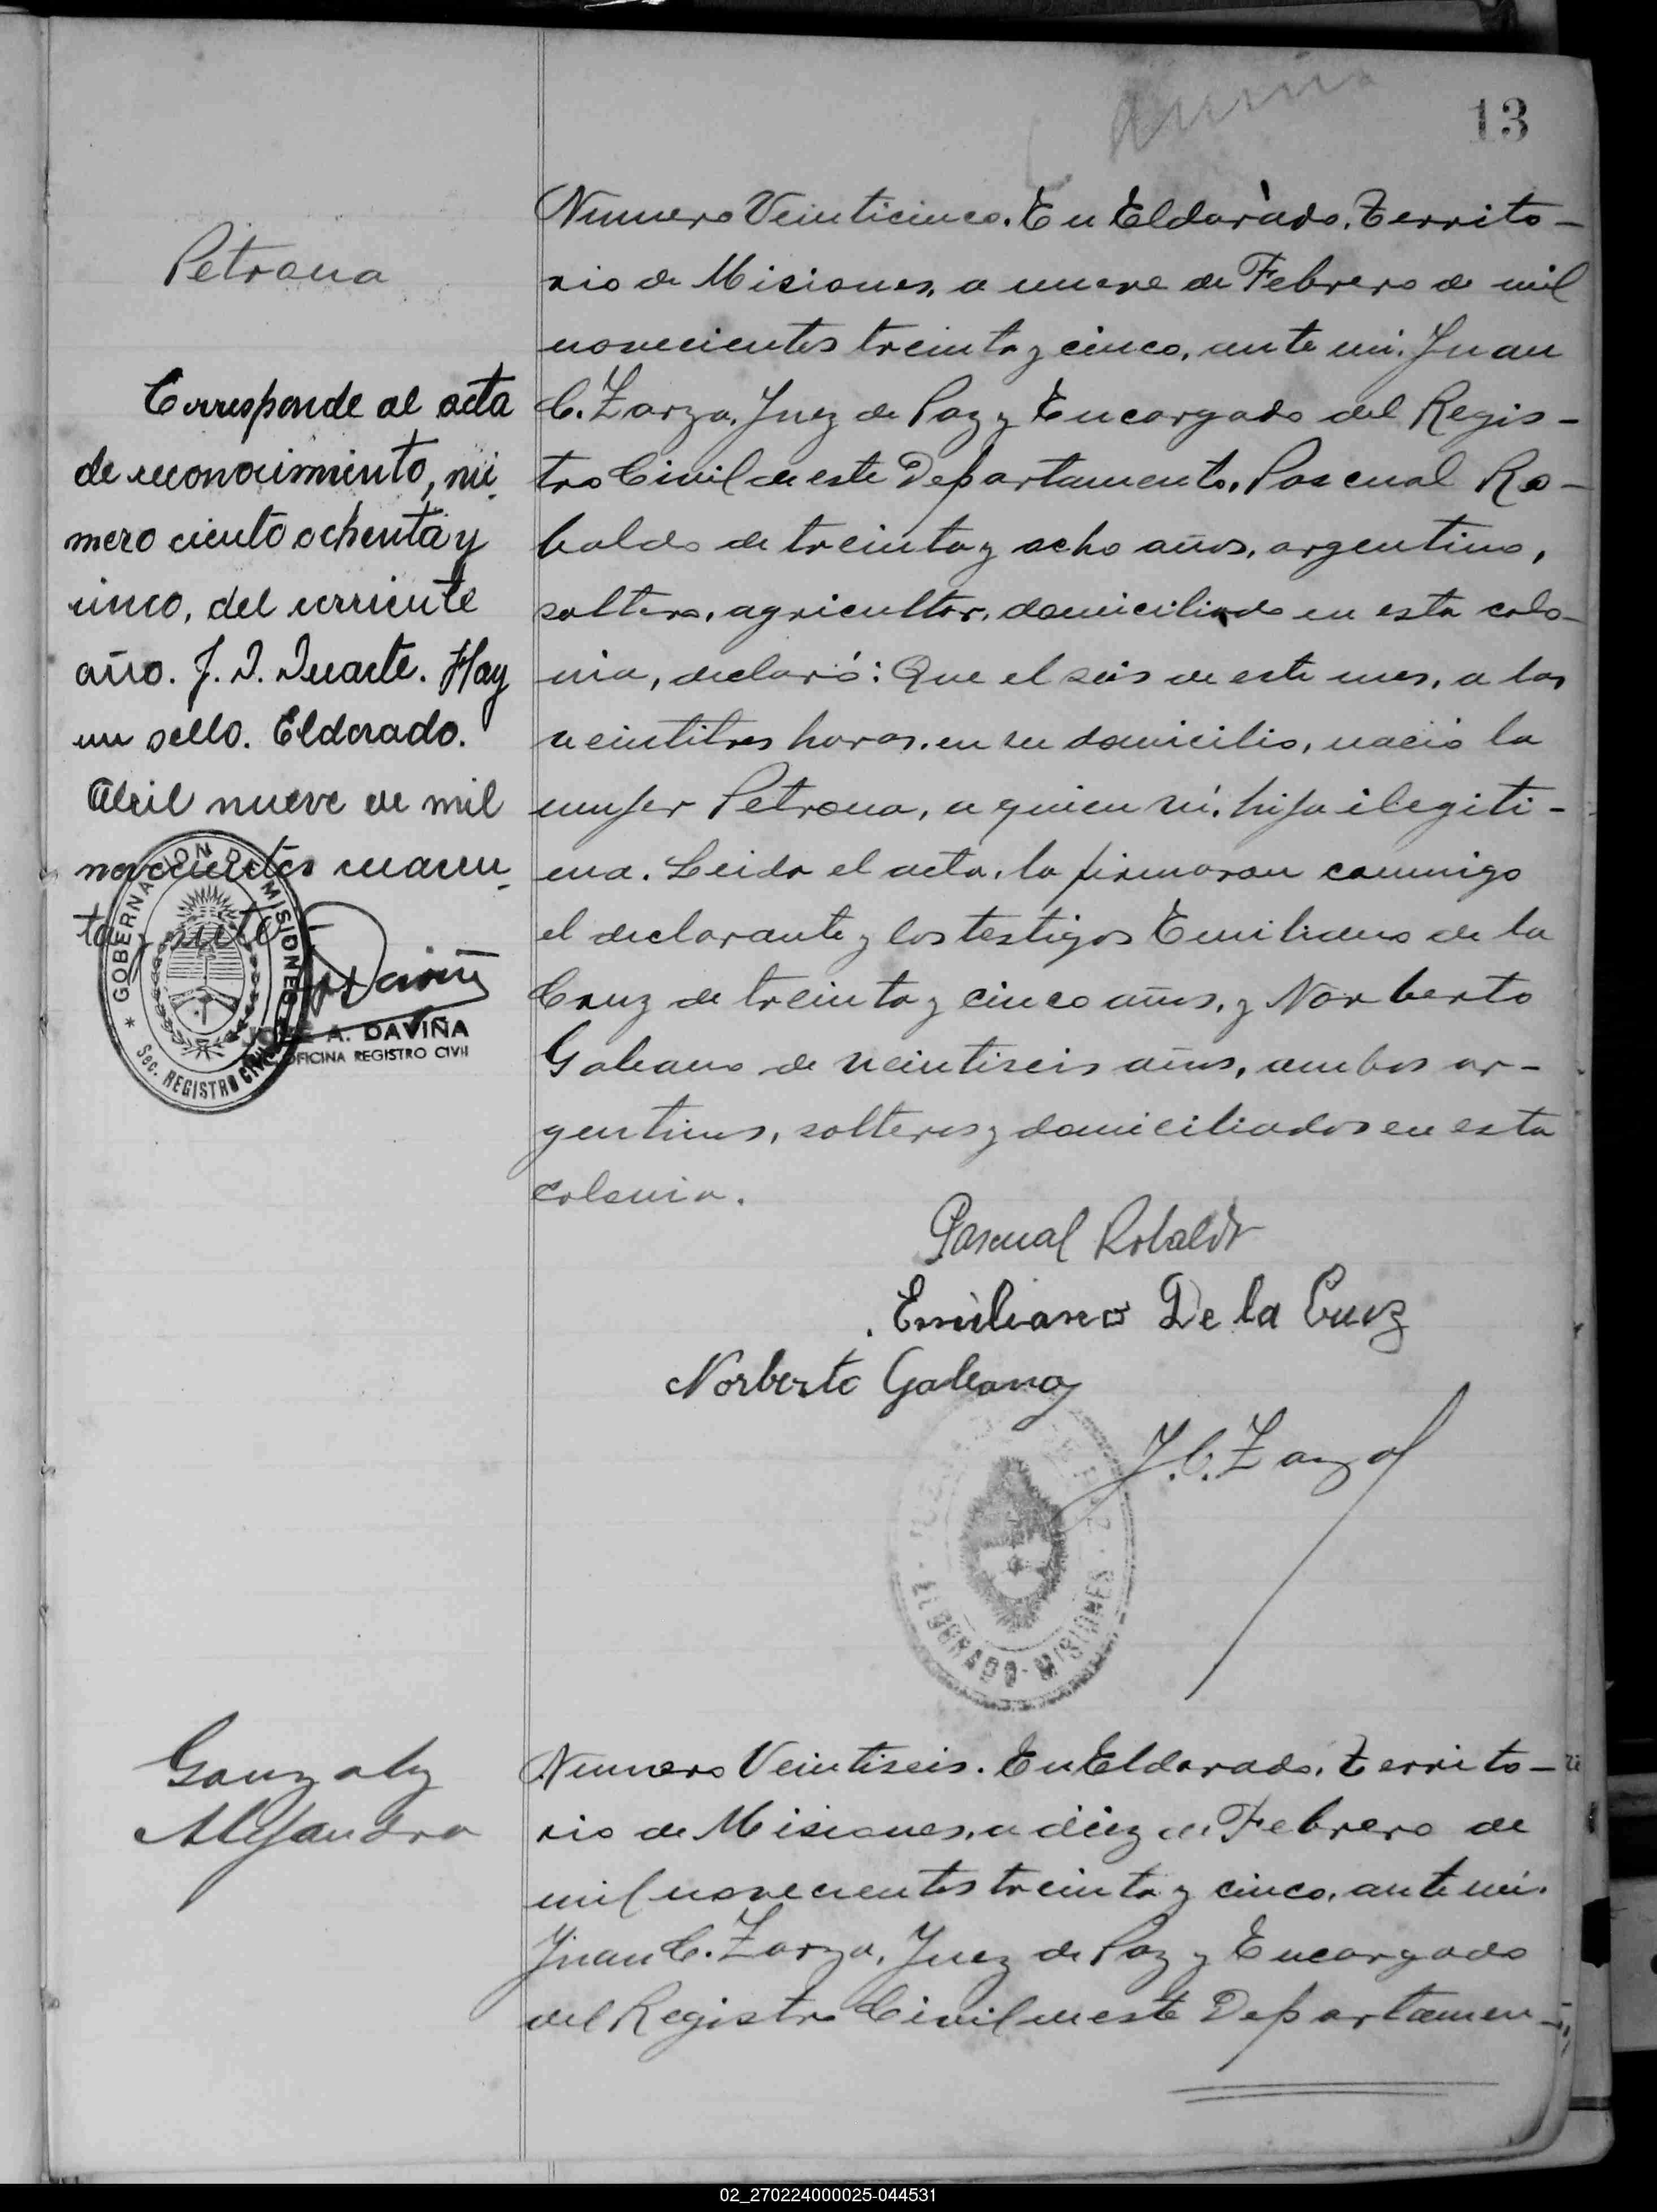 13
Numero Veinticinco. En Eldorado, Territo-
rio de Misiones, a nueve de Febrero de mil
novecientos treinta y cinco, ante mi, Juan
C. Zarza, Juez de Paz y Encargado del Regis-
tro Civil de este Departamento, Pascual Ro-
baldo de treinta y ocho años, argentino,
soltero, agricultor, domiciliado en esta colo-
nia, declaró: Que el seis de este mes, a las
veintitres horas, en su domicilio, nació la
mujer Petrona, a quien ví, hija ilegiti-
ma. Leida el acta, la firmaron conmigo
el declarante y los testigos Emiliano de la
Cruz de treinta y cinco años, y Norberto
Galeano de veintiseis años, ambos ar-
gentinos, solteros y domiciliados en esta
colonia.
Pascual Robaldo
Emiliano De la Cruz
Norberto Galeano
J. C. Zarza
ELDORADO - MISIONES
Petrona
Corresponde al acta
de reconocimiento, nú-
mero ciento ochenta y
cinco, del corriente
año. J. D. Duarte. Hay
un sello. Eldorado.
Abril nueve de mil
novecientos cuaren-
ta y siete
GOBERNACION DE MISIONES
Sec. REGISTRO CIVIL
JOSE A. DAVIÑA
OFICINA REGISTRO CIVIL
Gonzalez
Alejandra
Numero Veintiseis. En Eldorado, Territo-
rio de Misiones, a diez de Febrero de
mil novecientos treinta y cinco, ante mi,
Juan C. Zarza, Juez de Paz y Encargado
del Registro Civil de este Departamen-
02_270224000025-044531